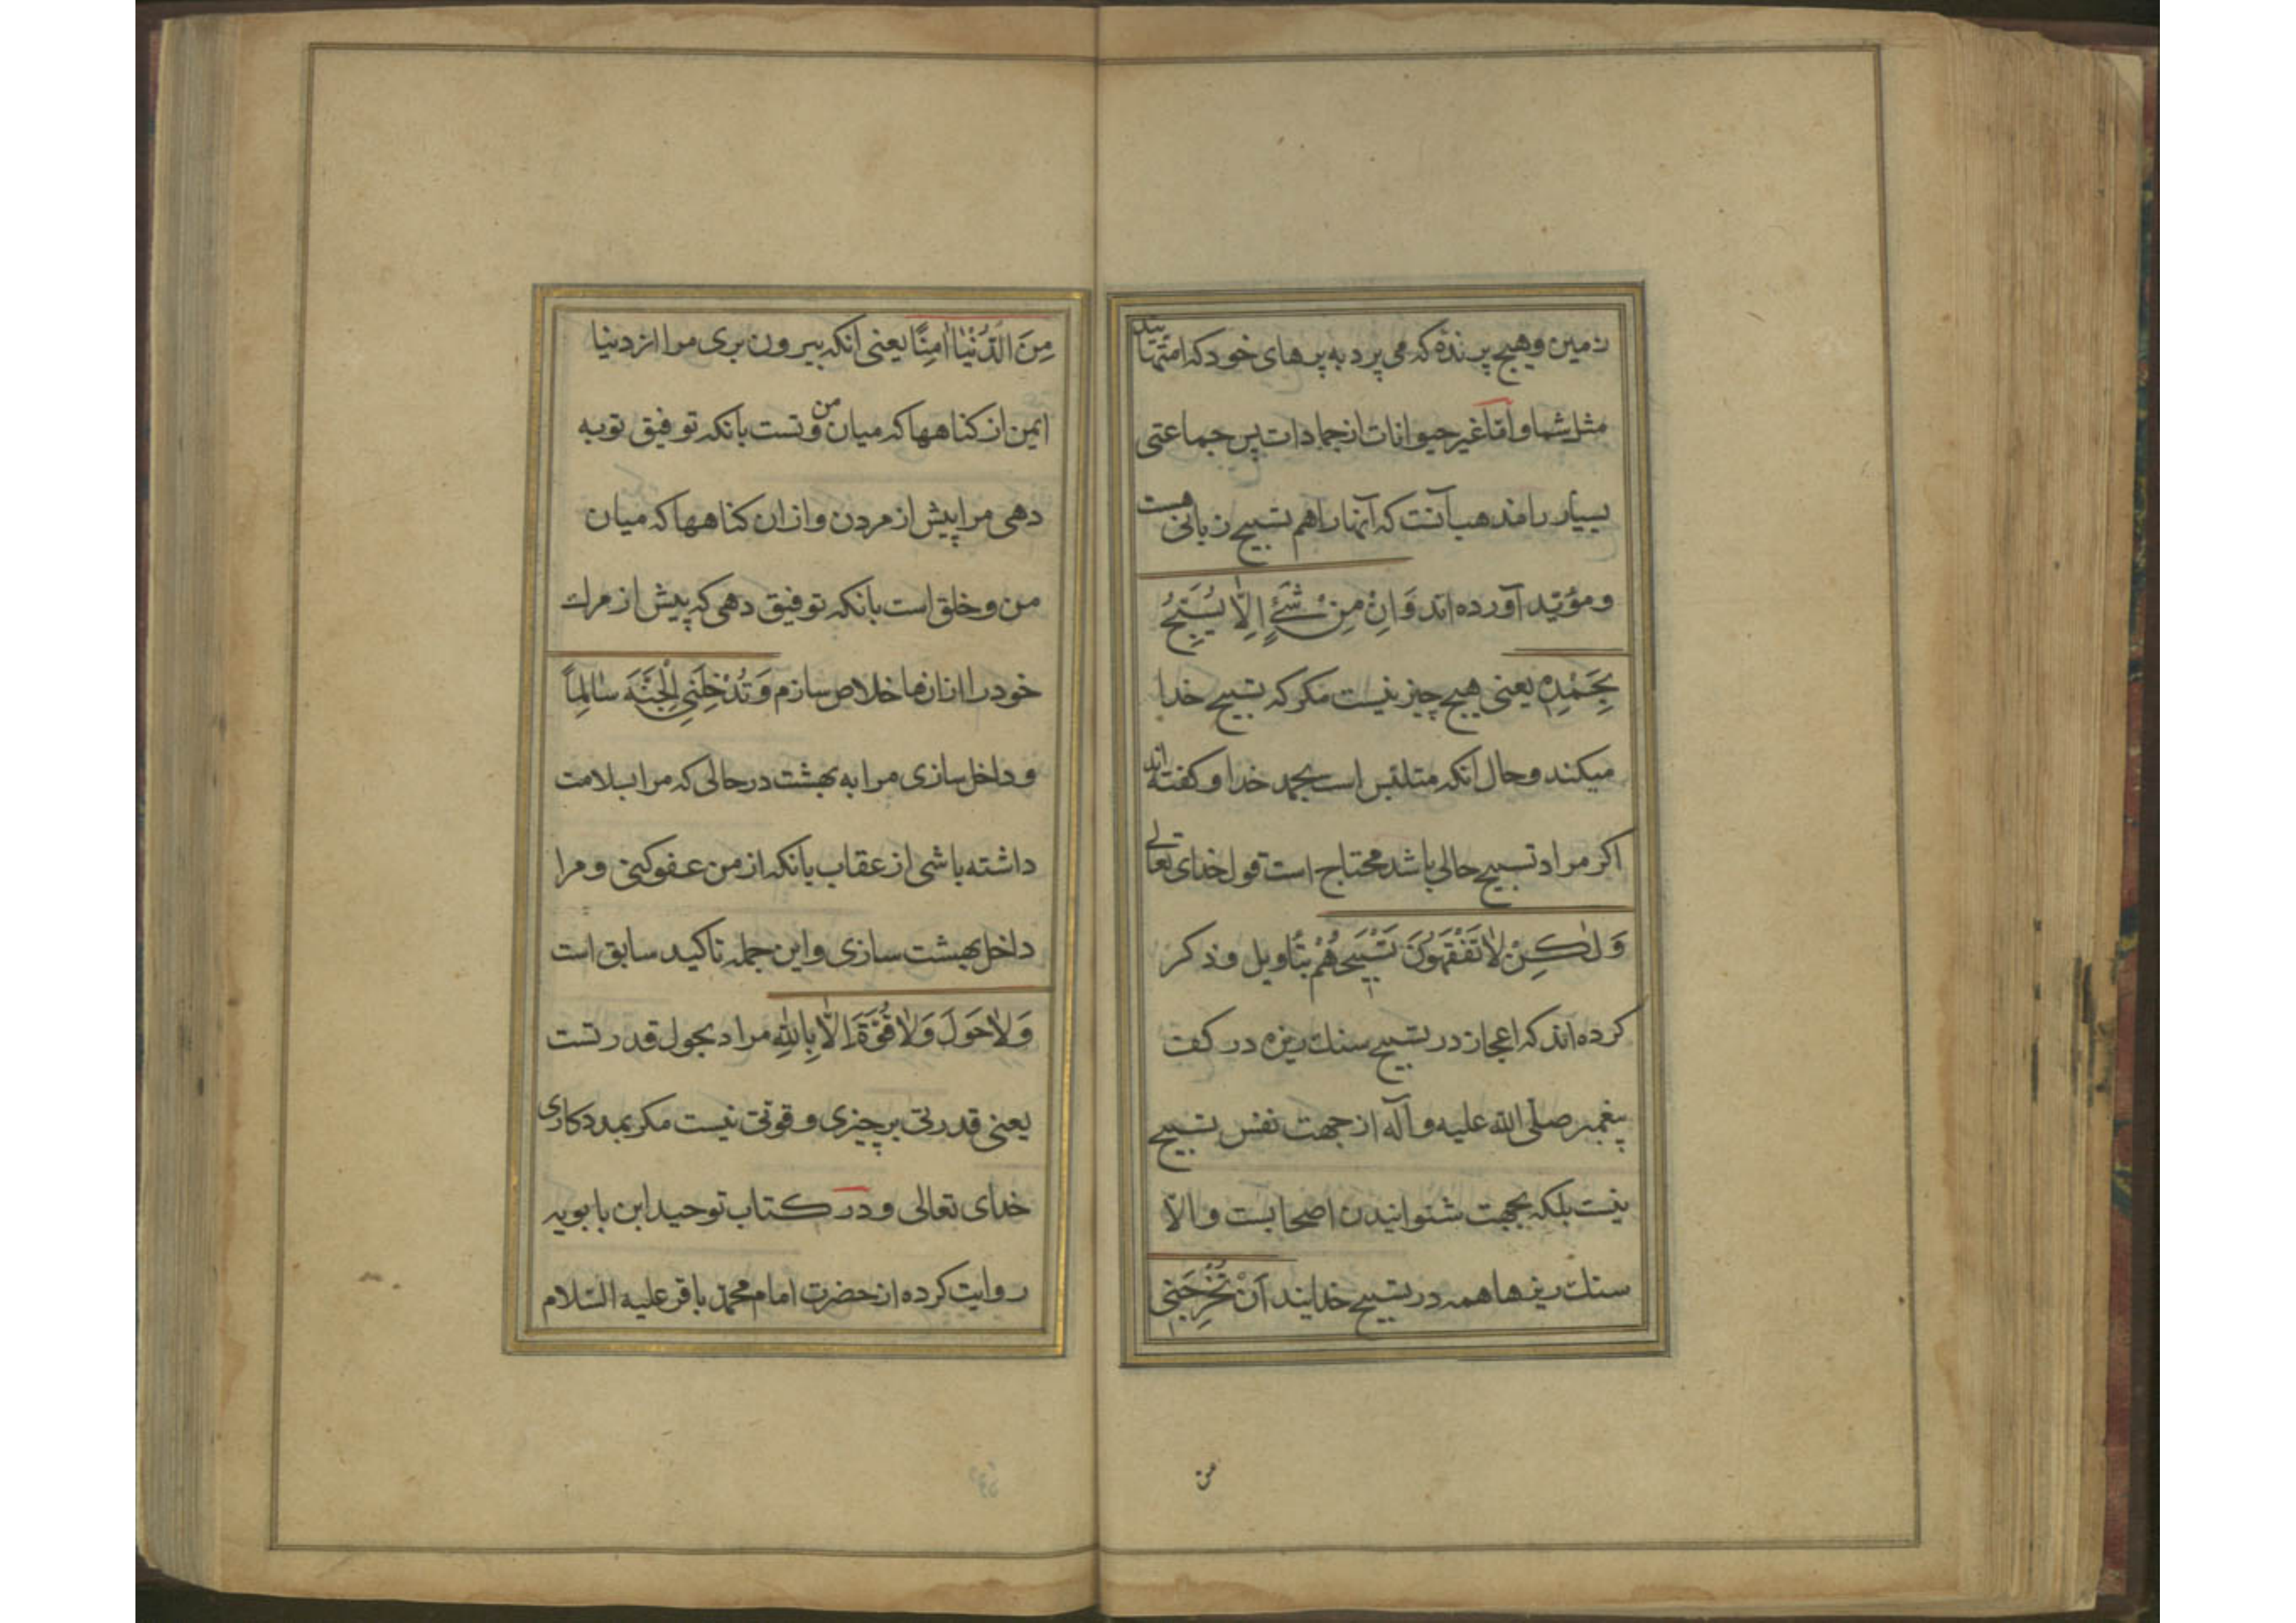 زمین و هیچ پرنده که می پرد به پرهای خود که امتهااند
مثل شما و امّا غیر حیوانات از جمادات پس جماعتی
بسیار را مذهب آنست که آنها را هم تسبیح زبانی هست
و مؤیّد آورده اند وَاِنْ مِنْ شَیْءٍ اِلّٰا یُسَبِّحُ
بِحَمْدِهِ یعنی هیچ چیز نیست مکر که تسبیح خدا
میکند و حال آنکه متلبّس است بحمد خدا و کفته اند
اکر مراد تسبیح حالی باشد محتاج است قول خدای تعالی
وَلٰکِنْ لٰا تَفْقَهُونَ تَسْبیحَهُمْ بتأویل و ذکر
کرده اند که اعجاز در تسبیح سنك ریزه در کف
پیغمبر صلّی الله علیه و آله از جهت نفس تسبیح
نیست بلکه بجهت شنوانیدن اصحابست و الّا
سنك ریزها همه در تسبیح خدایند اَنْ تُخْرِجَنی
من
مِنَ الدُّنْیٰا اٰمِنًا یعنی انکه بیرون بری مرا از دنیا
ایمن از کناهها که میان من و تست بانکه توفیق توبه
دهی مرا پیش از مردن و از ان کناهها که میان
من و خلق است بانکه توفیق دهی که پیش از مرك
خود را از انها خلاص سازم وَ تُدْخِلَنِی الْجَنَّةَ سٰالِماً
و داخل سازی مرا به بهشت در حالی که مرا بسلامت
داشته باشی از عقاب بانکه از من عفو کنی و مرا
داخل بهشت سازی و این جمله تاکید سابق است
وَلٰا حَوْلَ وَلٰا قُوَّةَ اِلّٰا بِاللّٰهِ مراد بحول قدرتست
یعنی قدرتی بر چیزی و قوتی نیست مکر بمددکاری
خدای تعالی و در کتاب توحید ابن بابویه
روایت کرده از حضرت امام محمّد باقر علیه السّلام